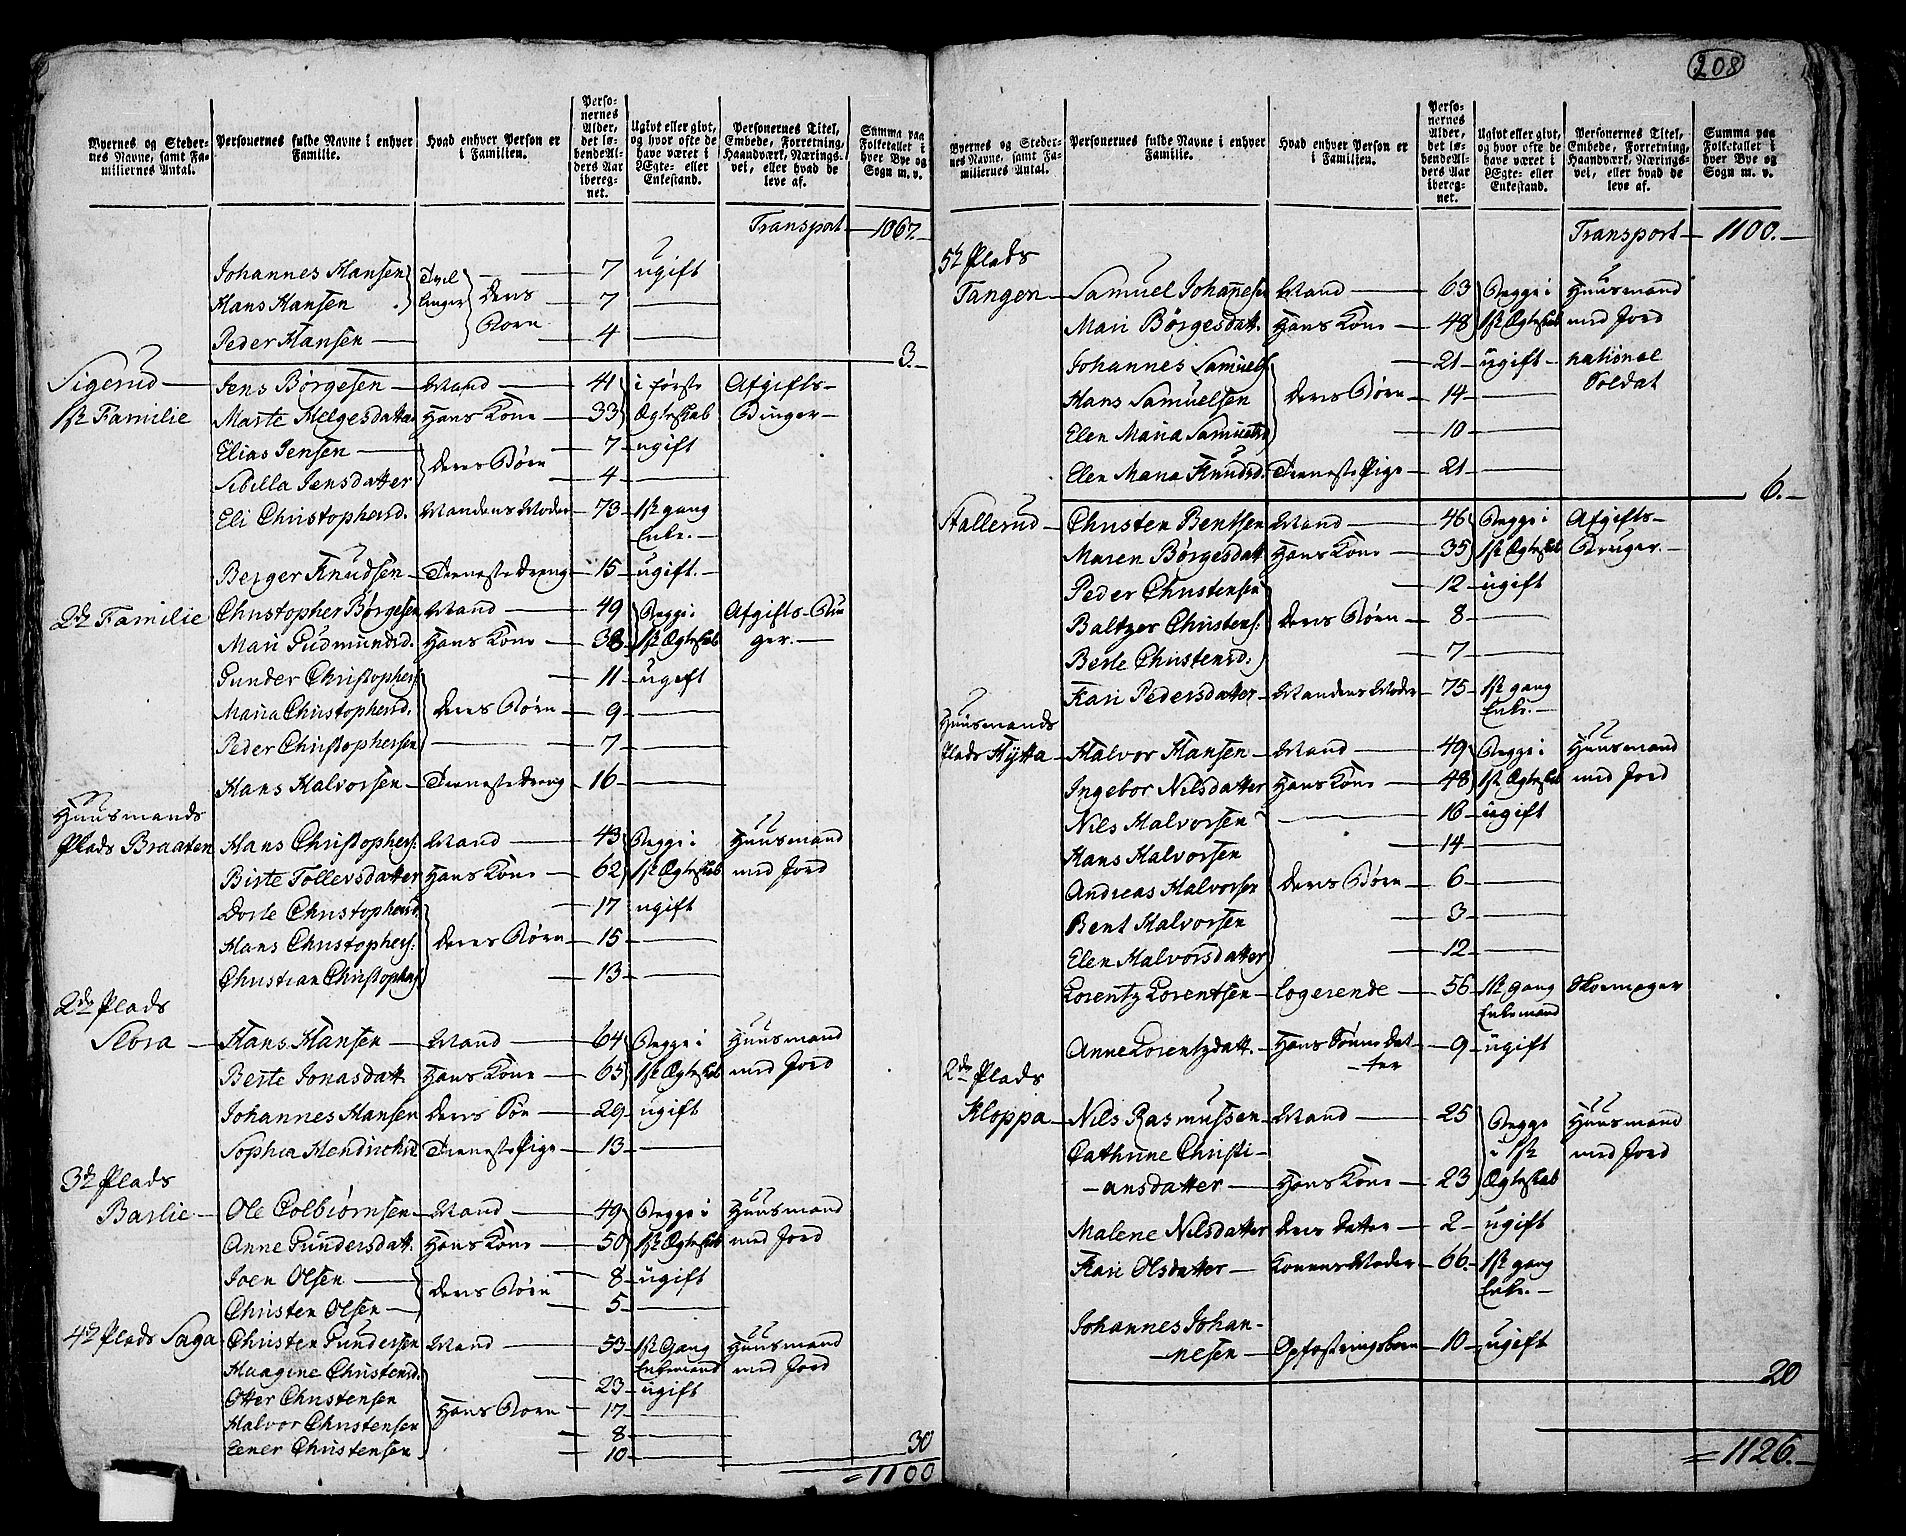 208
Byernes og Stedernes Navne, samt Familiernes Antal. | Personernes fulde Navne i enhver Familie. | Hvad enhver Person er i Familien. | Personernes Alder, det løbende Alders Aar iberegnet. | Ugivt eller givt, og hvor ofte de have været i Ægte- eller Enkestand. | Personernes Titel, Embede, Forretning, Haandværk, Næringsvei, eller hvad de leve af. | Summa paa Folketallet i hver Bye og Sogn m. v.
Transport 1067.
Johannes Hansen | Tvil | 7 | ugift
Hans Hansen | linger | Deres | 7
Peder Hansen | Børn | 4
3.
Sigerud | Jens Börgesen | Mand | 41 | i første | Afgifts-
1ste Familie | Marte Helgesdatter | Hans Kone | 33 | Ægteskab | Bruger
Elias Jensen | 7 | ugift
Sibilla Jensdatter | Deres Børn | 4
Eli Christophersd. | Mandens Moder | 73 | 1ste gang
Enke.
Berger Knudsen | Tieneste Dreng | 15 | ugift.
2den Familie | Christopher Börgesen | Mand | 49 | Begge i | Afgifts-Bru
Mari Gudmundsd. | Hans Kone | 38 | 1ste Ægteskab | ger.
Gunder Christophers. | 11 | ugift
Maria Christophersd. | Deres Børn | 9
Peder Christophersen | 7
Hans Halvorsen | Tieneste Dreng | 16
Huusmands
Plads Braaten | Hans Christophers. | Mand | 43 | Begge i | Huusmand
Birte Tollevsdatter | Hans Kone | 62 | 1ste Ægteskab | med Jord
Dorte Christophersd. | 17 | ugift
Hans Christophers. | Deres Børn | 15
Christian Christophers. | 13
2den Plads
Slora | Hans Hansen | Mand | 64 | Begge i | Huusmand
Berte Jonasdatt. | Hans Kone | 65 | 1ste Ægteskab | med Jord
Johannes Hansen | Deres Søn | 29 | ugift
Sophia Hendrichsd. | Tieneste Pige | 13
3die Plads
Barlie | Ole Colbiörnsen | Mand | 49 | Begge i | Huusmand
Anne Gundersdatt. | Hans Kone | 50 | 1ste Ægteskab | med Jord
Joen Olsen | 8 | ugift
Christen Olsen | Deres Børn | 5
4de Plads Saga | Christen Gundersen | Mand | 53 | 1ste Gang | Huusmand
Enkemand | med Jord
Christensd. | 23 | ugift
Otter Christensen | Hans Børn | 17
Halvor Christensen | 8
Eener Christensen | 10
30
= 1100
Byernes og Stedernes Navne, samt Familiernes Antal. | Personernes fulde Navne i enhver Familie. | Hvad enhver Person er i Familien. | Personernes Alder, det løbende Alders Aar iberegnet. | Ugivt eller givt, og hvor ofte de have været i Ægte- eller Enkestand. | Personernes Titel, Embede, Forretning, Haandværk, Næringsvei, eller hvad de leve af. | Summa paa Folketallet i hver Bye og Sogn m. v.
Transport 1100.
5te Plads
Tangen | Samuel Johanesen | Mand | 63 | Begge i | Huusmand
Mari Börgesdatt. | Hans Kone | 48 | 1ste Ægteskab | med Jord
Johannes Samuels. | 21 | ugift | national
Soldat
Hans Samuelsen | Deres Børn | 14
Elen Maria Samuelsd. | 10
Elen Maria Knudsd. | Tieneste Pige | 21
6.
Stallerud | Christen Bentsen | Mand | 46 | Begge i | Afgifts-
Maren Börgesdatt | Hans Kone | 35 | 1ste Ægteskab | Bruger.
Peder Christensen | 12 | ugift
Baltzer Christens. | Deres Børn | 8
Berte Christensd. | 7
Kari Pedersdatter | Mandens Moder | 75 | 1ste gang
Enke.
Huusmands
Plads Hytta | Halvor Hansen | Mand | 49 | Begge i | Huusmand
Ingebor Nilsdatter | Hans Kone | 48 | 1ste Ægteskab | med Jord
Nils Halvorsen | 16 | ugift
Hans Halvorsen | 14
Andreas Halvorsen | Deres Børn | 6
Bent Halvorsen | 3
Elen Halvorsdatter | 12
Lorentz Lorentsen | logerende | 56 | 1ste gang | Skomager
Enkemand
Anne Lorentzdatt. | Hans Sønne Dat-
ter | 9 | ugift
2den Plads
Kloppa | Nils Rasmussen | Mand | 25 | Begge | Huusmand
Cathrine Christi- | i 1ste | med Jord
-ansdatter | Hans Kone | 23 | Ægteskab
Malene Nilsdatter | Deres Datter | 2 | ugift
Kari Olsdatter | Konens Moder | 66. | 1ste gang
Enke.
Johannes Johan-
-nesen | Opfostringsbarn | 10 | ugift
20
= 1126.